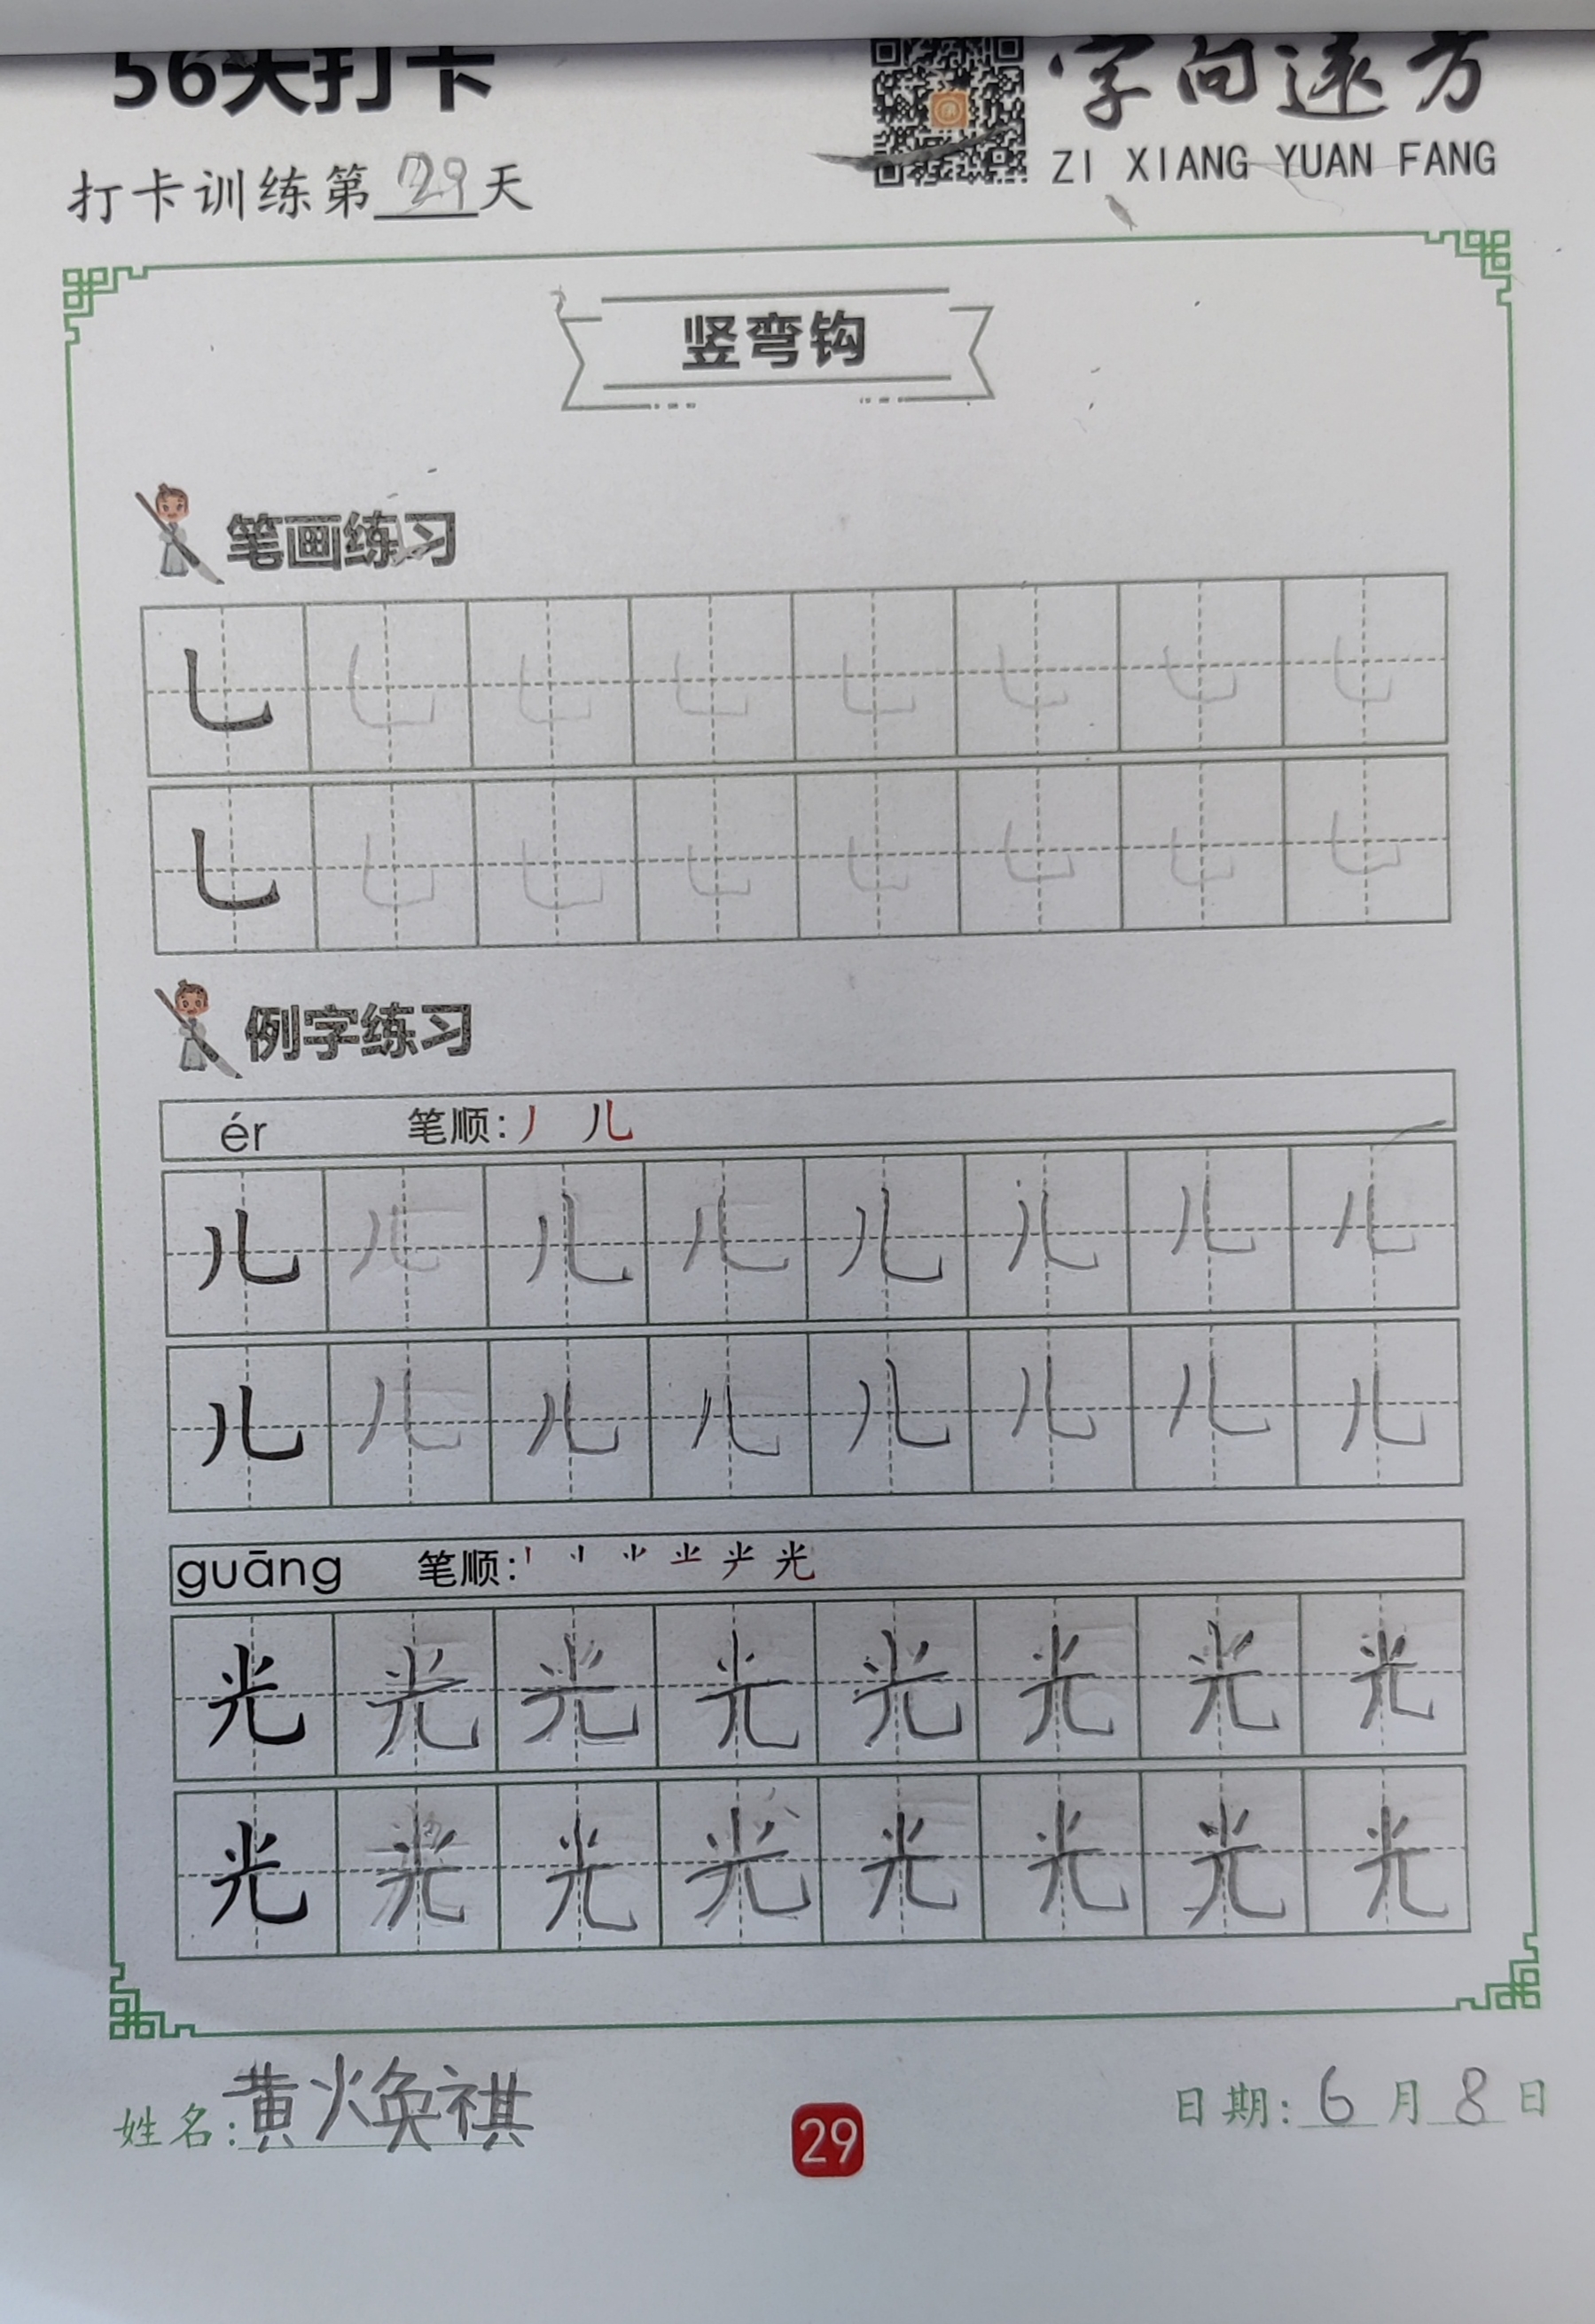 56天打卡
字向远方
ZI XIANG YUAN FANG
打卡训练第29天
竖弯钩
笔画练习
乚 乚 乚 乚 乚 乚 乚 乚
乚 乚 乚 乚 乚 乚 乚 乚
例字练习
ér 笔顺：丿 儿
儿 儿 儿 儿 儿 儿 儿 儿
儿 儿 儿 儿 儿 儿 儿 儿
guāng 笔顺：
光 光 光 光 光 光 光 光
光 光 光 光 光 光 光 光
姓名：黄焕祺
29
日期：6月8日